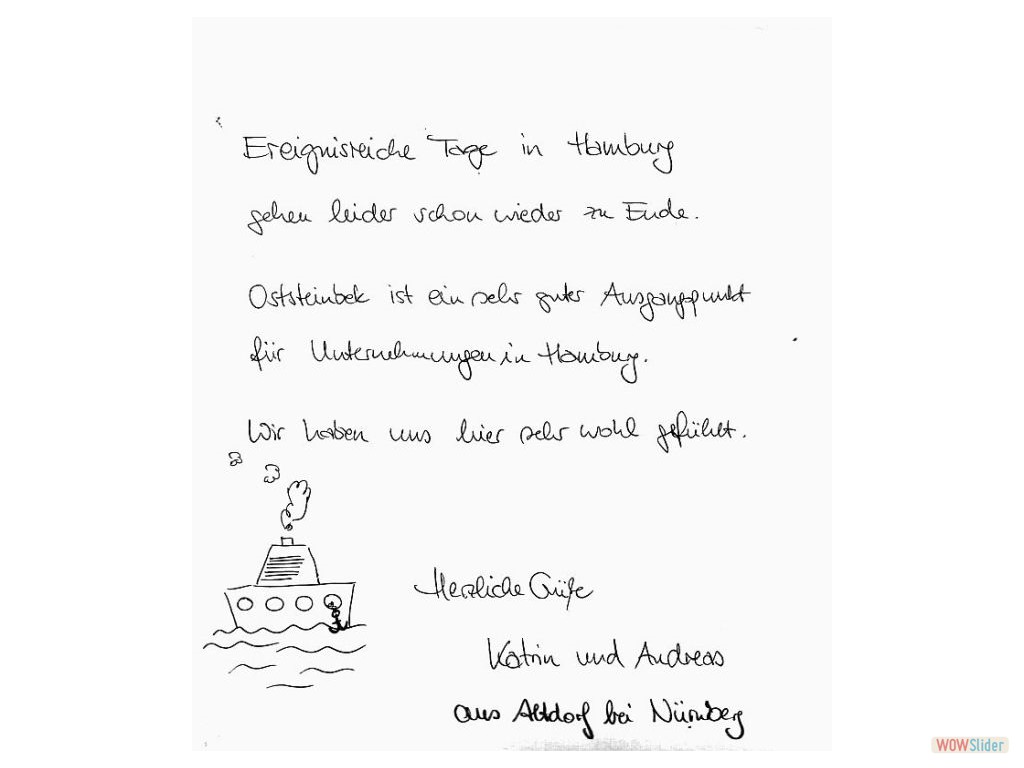 Ereignisreiche Tage in Hamburg
gehen leider schon wieder zu Ende.
Oststeinbek ist ein sehr guter Ausgangspunkt
für Unternehmungen in Hamburg.
Wir haben uns hier sehr wohl gefühlt.
Herzliche Grüße
Katrin und Andreas
aus Altdorf bei Nürnberg
WOWSlider